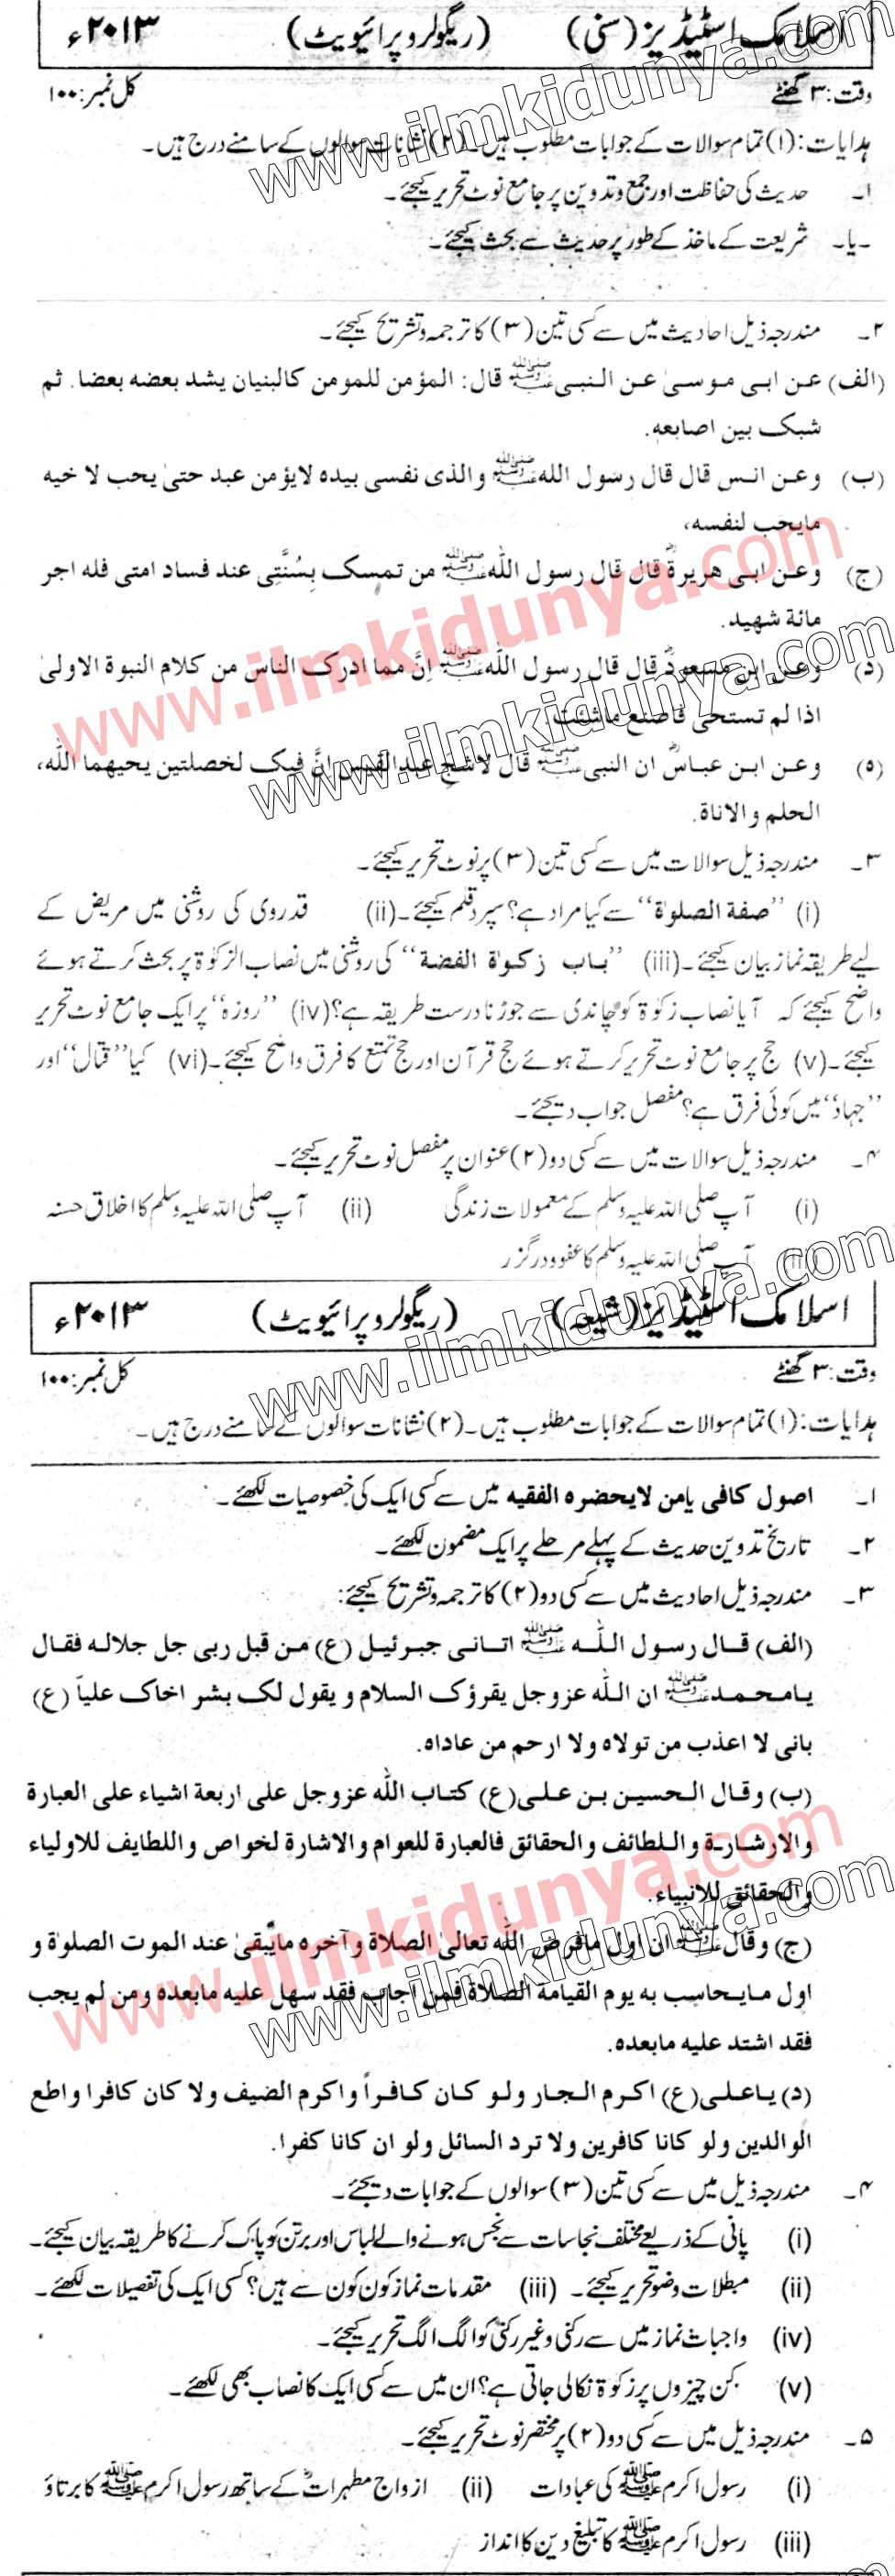 اسلامک اسٹیڈیز (سنی) (ریگولر و پرائیویٹ) ۲۰۱۳ء
وقت: ۳ گھنٹے کل نمبر: ۱۰۰
ہدایات: (۱) تمام سوالات کے جوابات مطلوب ہیں۔ (۲) نشانات سوالوں کے سامنے درج ہیں۔
۱۔ حدیث کی حفاظت اور جمع و تدوین پر جامع نوٹ تحریر کیجئے۔
-یا- شریعت کے ماخذ کے طور پر حدیث سے بحث کیجئے۔
۲۔ مندرجہ ذیل احادیث میں سے کسی تین (۳) کا ترجمہ و تشریح کیجئے۔
(الف) عن ابی موسیٰ عن النبی ﷺ قال: المؤمن للمومن کالبنیان یشد بعضه بعضا. ثم
شبک بین اصابعه.
(ب) وعن انس قال قال رسول الله ﷺ والذی نفسی بیده لایؤمن عبد حتیٰ یحب لا خیه
مایحب لنفسه،
(ج) وعن ابی هریرةؓ قال قال رسول اللہ ﷺ من تمسک بِسُنَّتِی عند فساد امتی فله اجر
مائة شهید.
(د) وعن ابن مسعودؓ قال قال رسول اللہ ﷺ اِنَّ مما ادرک الناس من کلام النبوة الاولیٰ
اذا لم تستحی فاصنع ماشئت.
(ہ) وعن ابن عباسؓ ان النبی ﷺ قال لاشجِ عبدالقیس اِنَّ فیک لخصلتین یحبهما اللہ،
الحلم والاناة.
۳۔ مندرجہ ذیل سوالات میں سے کسی تین (۳) پر نوٹ تحریر کیجئے۔
(i) ”صفة الصلوٰة“ سے کیا مراد ہے؟ سپرد قلم کیجئے۔ (ii) قدروی کی روشنی میں مریض کے
لیے طریقہ نماز بیان کیجئے۔ (iii) ”باب زکوٰة الفضة“ کی روشنی میں نصاب الزکوٰة پر بحث کرتے ہوئے
واضح کیجئے کہ آیا نصاب زکوٰة کو چاندی سے جوڑنا درست طریقہ ہے؟ (iv) ”روزہ“ پر ایک جامع نوٹ تحریر
کیجئے۔ (v) حج پر جامع نوٹ تحریر کرتے ہوئے حج قرآن اور حج تمتع کا فرق واضح کیجئے۔ (vi) کیا ”قتال“ اور
”جہاد“ میں کوئی فرق ہے؟ مفصل جواب دیجئے۔
۴۔ مندرجہ ذیل سوالات میں سے کسی دو (۲) عنوان پر مفصل نوٹ تحریر کیجئے۔
(i) آپ صلی اللہ علیہ وسلم کے معمولات زندگی (ii) آپ صلی اللہ علیہ وسلم کا اخلاق حسنہ
(iii) آپ صلی اللہ علیہ وسلم کا عفو و درگزر
اسلامک اسٹیڈیز (شیعہ) (ریگولر و پرائیویٹ) ۲۰۱۳ء
وقت: ۳ گھنٹے کل نمبر: ۱۰۰
ہدایات: (۱) تمام سوالات کے جوابات مطلوب ہیں۔ (۲) نشانات سوالوں کے سامنے درج ہیں۔
۱۔ اصول کافی یا من لایحضرہ الفقیه میں سے کسی ایک کی خصوصیات لکھئے۔
۲۔ تاریخ تدوین حدیث کے پہلے مرحلے پر ایک مضمون لکھئے۔
۳۔ مندرجہ ذیل احادیث میں سے کسی دو (۲) کا ترجمہ و تشریح کیجئے:
(الف) قال رسول اللہ ﷺ اتانی جبرئیل (ع) من قبل ربی جل جلاله فقال
یامحمد ﷺ ان اللہ عزوجل یقرؤک السلام و یقول لک بشر اخاک علیاً (ع)
بانی لا اعذب من تولاه ولا ارحم من عاداه.
(ب) وقال الحسین بن علی (ع) کتاب اللہ عزوجل علی اربعة اشیاء علی العبارة
والارشارة واللطائف والحقائق فالعبارة للعوام والاشارة لخواص واللطایف للاولیاء
والحقائق للانبیاء.
(ج) وقال ﷺ ان اول مافرض اللہ تعالیٰ الصلاة و آخره مایبقیٰ عند الموت الصلوٰة و
اول مایحاسب به یوم القیامة الصلاة فمن اجاب فقد سهل علیه مابعده ومن لم یجب
فقد اشتد علیه مابعده.
(د) یاعلی (ع) اکرم الجار ولو کان کافراً واکرم الضیف ولا کان کافرا واطع
الوالدین ولو کانا کافرین ولا ترد السائل ولو ان کانا کفرا.
۴۔ مندرجہ ذیل میں سے کسی تین (۳) سوالوں کے جوابات دیجئے۔
(i) پانی کے ذریعے مختلف نجاسات سے نجس ہونے والے لباس اور برتن کو پاک کرنے کا طریقہ بیان کیجئے۔
(ii) مبطلات وضو تحریر کیجئے۔ (iii) مقدمات نماز کون کون سے ہیں؟ کسی ایک کی تفصیلات لکھئے۔
(iv) واجبات نماز میں سے رکنی و غیر رکنی کو الگ الگ تحریر کیجئے۔
(v) کن چیزوں پر زکوٰة نکالی جاتی ہے؟ ان میں سے کسی ایک کا نصاب بھی لکھئے۔
۵۔ مندرجہ ذیل میں سے کسی دو (۲) پر مختصر نوٹ تحریر کیجئے۔
(i) رسول اکرم ﷺ کی عبادات (ii) ازواج مطہراتؓ کے ساتھ رسول اکرم ﷺ کا برتاؤ
(iii) رسول اکرم ﷺ کا تبلیغ دین کا انداز
www.ilmkidunya.com
www.ilmkidunya.com
www.ilmkidunya.com
www.ilmkidunya.com
www.ilmkidunya.com
www.ilmkidunya.com